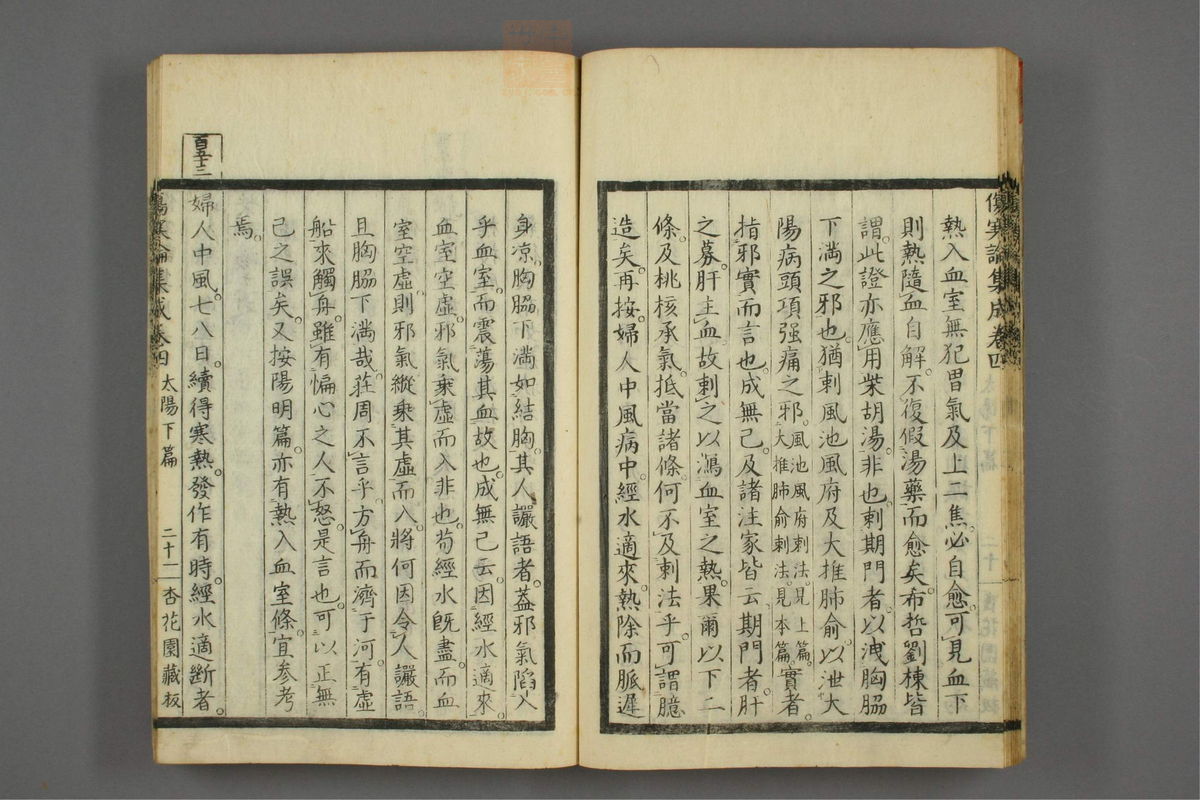 傷寒論集成卷四
熱入血室無犯胃氣及上二焦必自愈可見血下
則熱隨血自解不復假湯藥而愈矣希哲劉棟皆
謂此證亦應用柴胡湯非也刺期門者以洩胸脇
下滿之邪也猶刺風池風府及大椎肺俞以泄大
陽病頭項强痛之邪風池風府刺法見上篇大椎肺俞刺法見本篇實者
指邪實而言也成無己及諸注家皆云期門者肝
之募肝主血故刺之以瀉血室之熱果爾以下二
條及桃核承氣抵當諸條何不及刺法乎可謂臆
造矣再按婦人中風病中經水適來熱除而脈遲
身凉胸脇下滿如結胸其人讝語者蓋邪氣陷入
乎血室而震蕩其血故也成無己云因經水適來
血室空虛邪氣乘虛而入非也苟經水既盡而血
室空虛則邪氣縱乘其虛而入將何因令人讝語
且胸脇下滿哉莊周不言乎方舟而濟于河有虛
船來觸舟雖有惼心之人不怒是言也可以正無
己之誤矣又按陽明篇亦有熱入血室條宜參考
焉
百五十三
婦人中風七八日續得寒熱發作有時經水適斷者
傷寒論集成卷四 太陽下篇 二十一 杏花園藏板